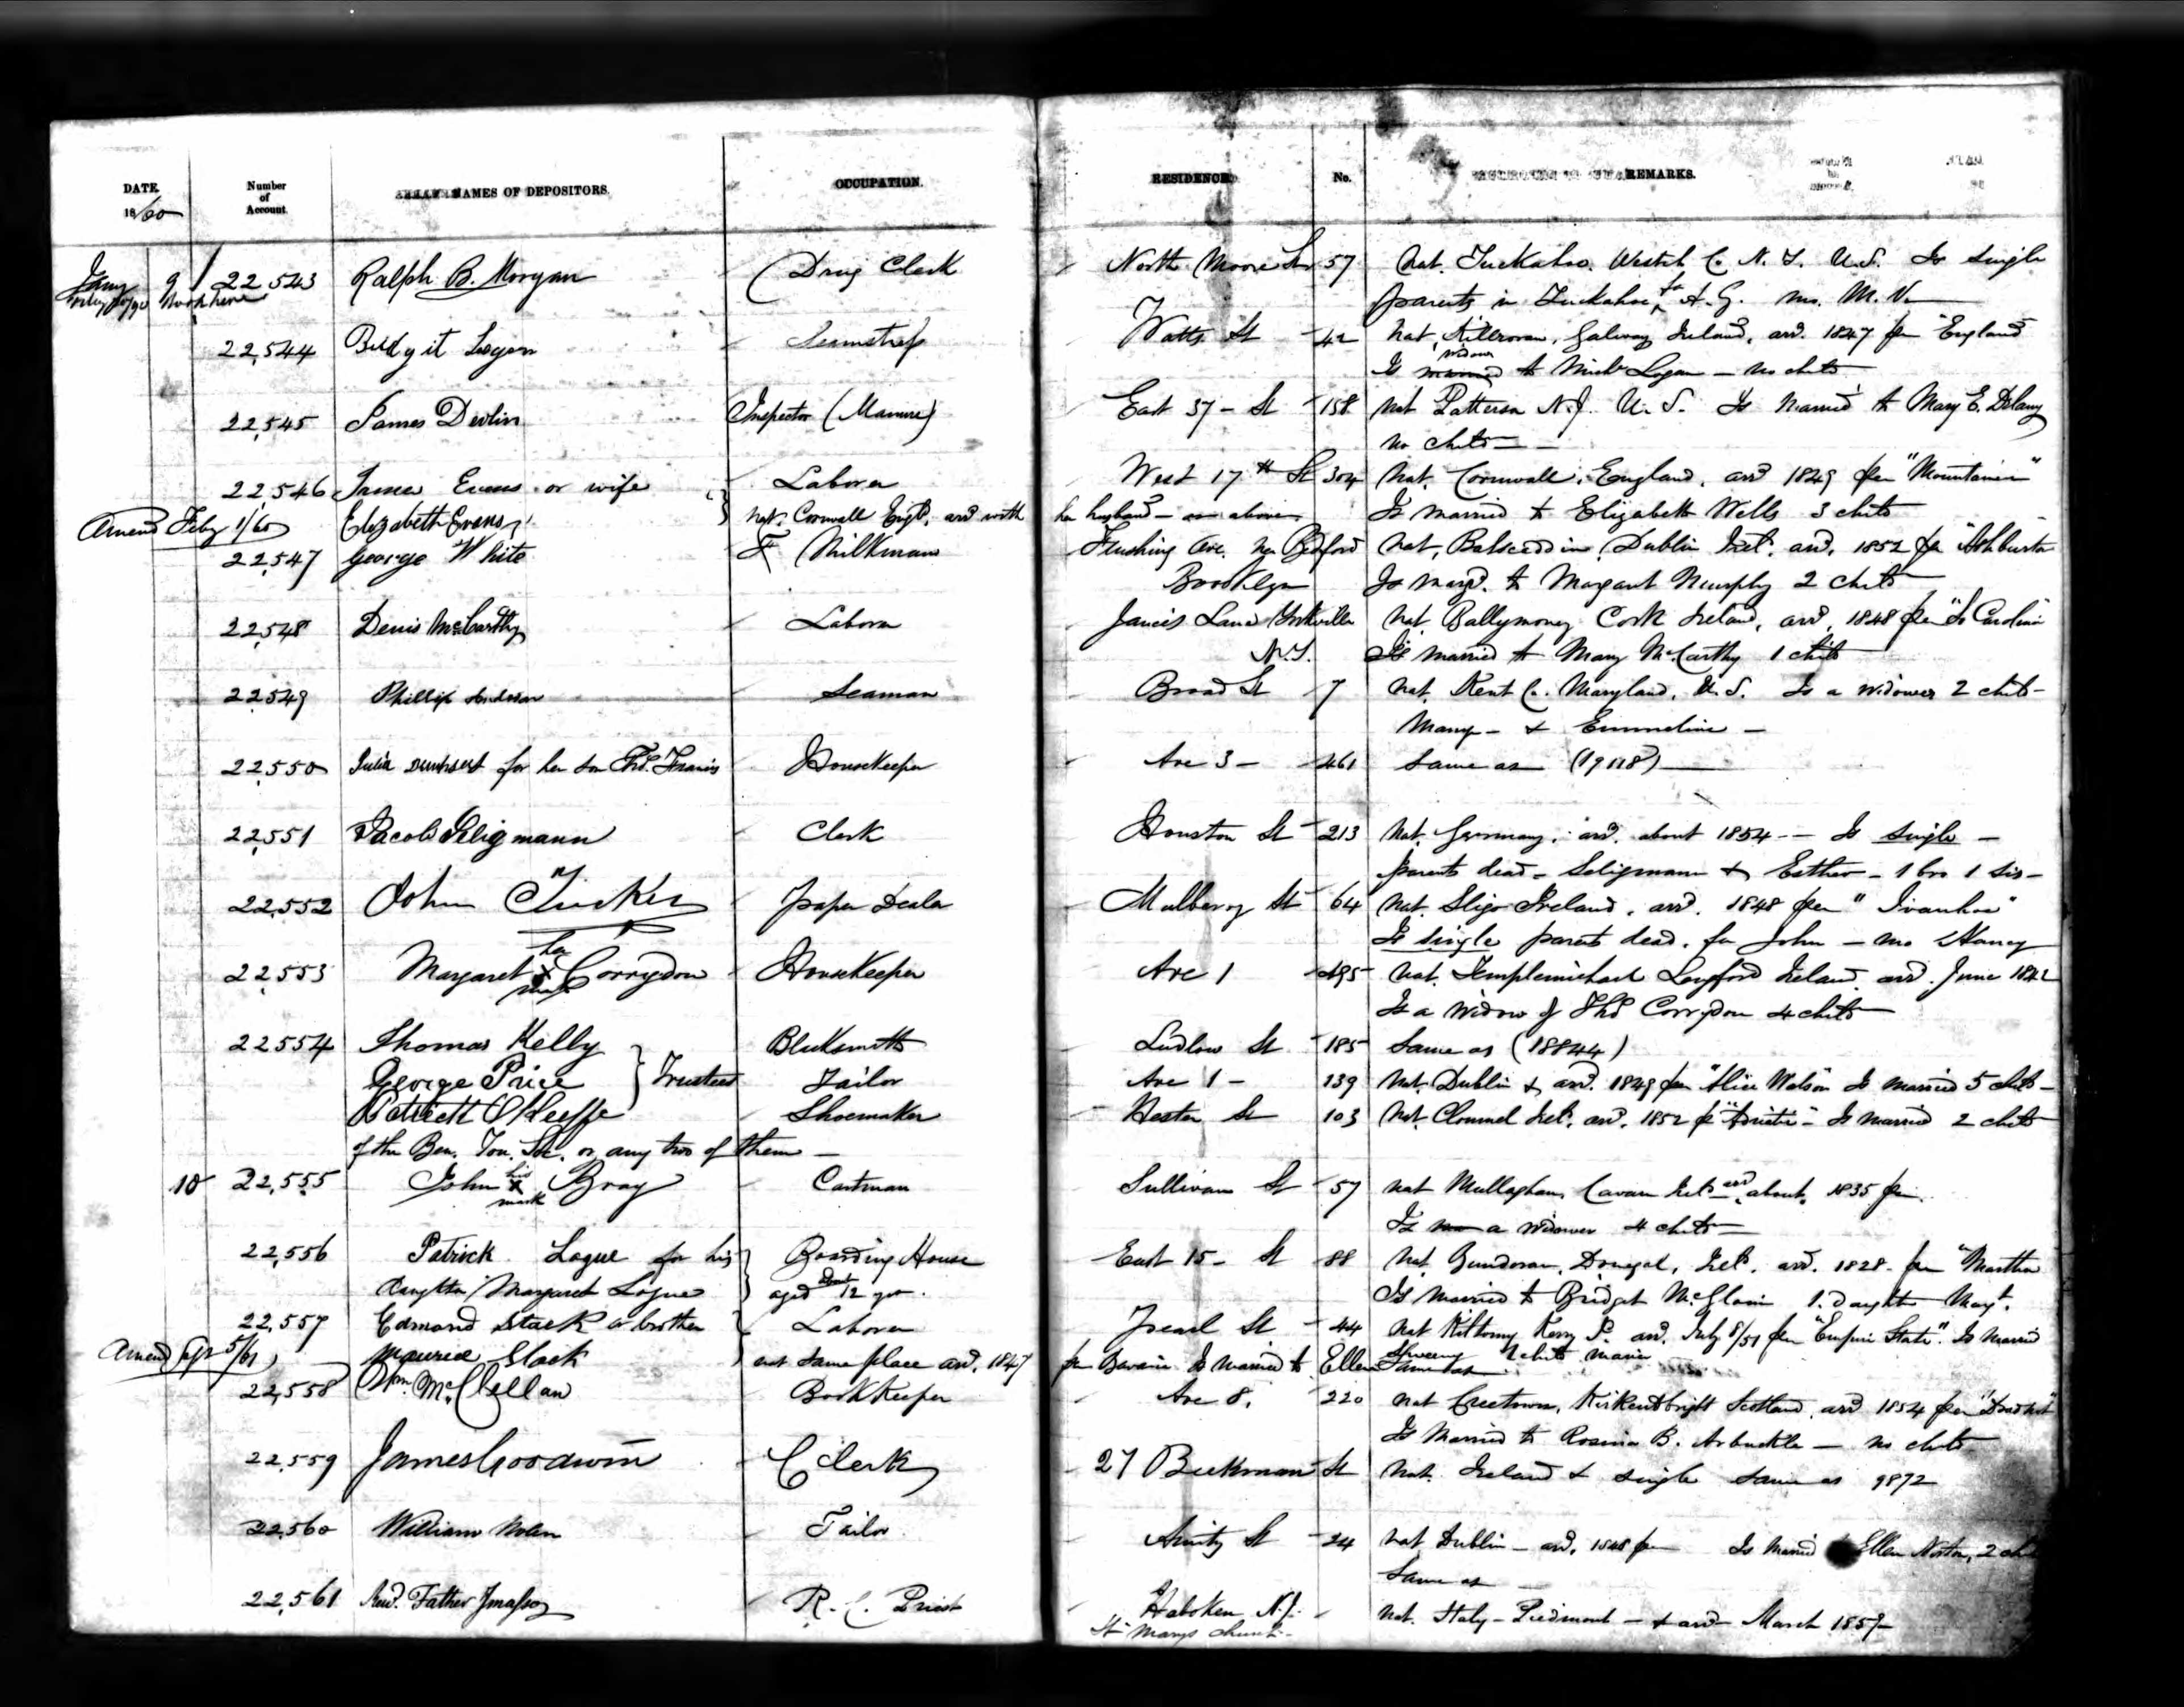 DATE. Number of Account. NAMES OF DEPOSITORS. OCCUPATION. RESIDENCE. No. REMARKS.
1860
Jany 9 22,543 Ralph B. Morgan Drug Clerk North Moore St 57 Nat. Tuckahoe. Westch Co N.Y. U.S. Is single
parents in Tuckahoe, fa A.G. mo. M.V.
22,544 Bridgit Logan Seamstress Watts St 42 Nat. Galway Ireland, arrd. 1847 per "England"
Is widow to Michl Logan — no child
22,545 James Devlin Inspector (Manure) East 37 - St 158 Nat Patterson N.J. U.S. Is married to Mary E. Delany
no child
22,546 James Evans or wife Laborer West 17th St 304 Nat. Cornwall, England, arrd 1849 per "Mountaineer"
Amend Feby 1/60 Elizabeth Evans nat. Cornwall Engd. arrd with her husband — as above Is married to Elizabeth Wells 3 child
22,547 George White Milkman Flushing Ave. nr Bedford Nat. Dublin Ireld. arrd. 1852 per "Ashburton
Brooklyn Is mard. to Margaret Murphy 2 child
22,548 Denis McCarthy Laborer Lane Yorkville Nat. Ballymoney Cork Ireland, arrd. 1848 per "Carolina"
N.Y. Is married to Mary McCarthy 1 child
22,549 Phillip Anderson Seaman Broad St 7 Nat. Kent Co. Maryland, U.S. Is a widower 2 child —
Mary — & Emmeline —
22,550 Julia for her son Thos. Francis Housekeeper Ave 3 — 461 Same as
22,551 Jacob Seligmann Clerk Houston St 213 Nat. Germany. arrd. about 1854 — Is single —
parents dead — Seligmann & Esther — 1 bro 1 sis —
22,552 John Tucker paper Dealer Mulberry St 64 Nat. Sligo Ireland. arrd. 1848 per "Ivanhoe"
Is single parents dead. fa John — mo Nancy
22,553 Margaret her X mark Corrydon Housekeeper Ave 1 495 Nat. Templemichael Longford Ireland arrd. June 1842
Is a widow of Thos Corrydon 4 child
22554 Thomas Kelly Blacksmith Ludlow St 185 Same as (18844)
George Price } Trustees Tailor Ave 1 — 139 Nat. Dublin & arrd. 1849 per "Alice Wilson" Is married 5 child —
Patrick O'Keeffe Shoemaker Hester St 103 Nat. Clonmel Ireld. arrd. 1852 pr "Adriatic" — Is married 2 child
of the Ben. Ton. Soc. or any two of them —
10 22,555 John his X mark Bray Cartman Sullivan St 57 nat Mullaghan, Cavan Ireld arrd about 1835 per
Is a widower 4 child
22,556 Patrick Logue for his Boarding House East 15 — St 88 Nat. Bundoran, Donegal, Ireld. arrd. 1828 — per "Martha
daughter Margaret Logue aged about 12 yrs. Is married to Bridget McGloin 1. Daughter Margt.
22,557 Edmond Stack or brother Laborer Pearl St 44 Nat Kerry arrd. July 8/51 per "Empire State". Is married
Amend 5/61 Maurice Stack nat same place arrd. 1847 per Bavaria Is married to Ellen Sweeny 1 child Maria Same as
22,558 Wm. McClellan BookKeeper Ave 8. 220 nat Creetown, Kirkcudbright Scotland, arrd 1854 per
Is married to Rosina B. Arbuckle — no child
22,559 James Goodwin Clerk 27 Beekman St Nat. Ireland & single Same as 9872
22,560 William Nolan Tailor Amity St 24 nat Dublin — arrd. 1848 per Is married Ellen Norton, 2
Same as
22,561 Revd. Father R.C. Priest Hoboken N.J. nat. Italy — Piedmont — & arrd — March 1857
St Marys church —